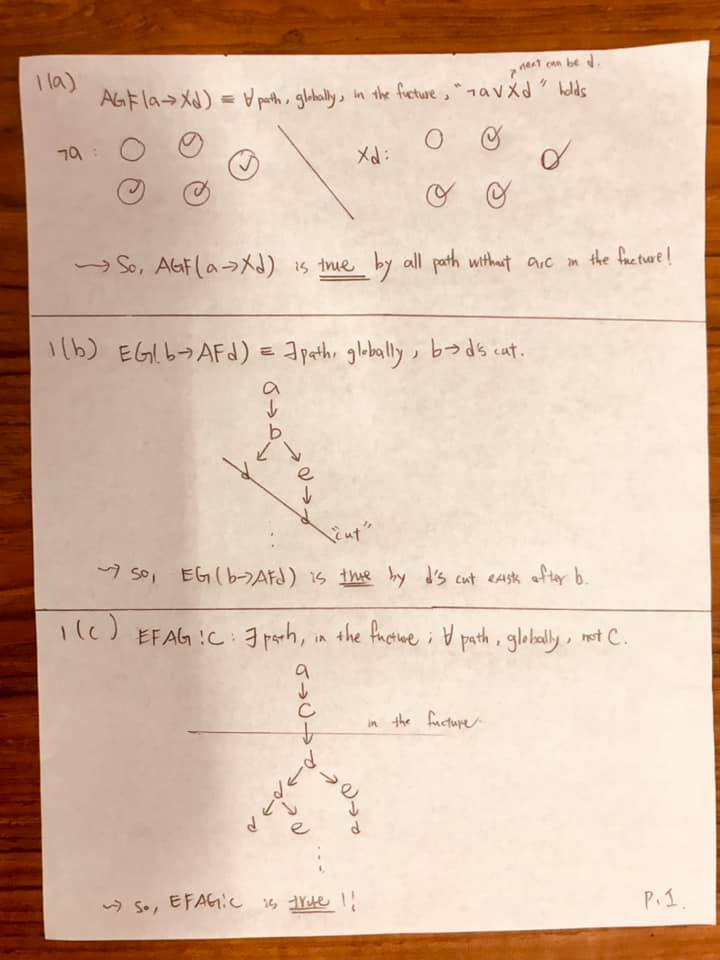 1(a)
↗ next can be d.
AGF(a→Xd) ≡ ∀path, globally, in the fucture, "¬a∨Xd" holds
¬a :
Xd:
~> So, AGF(a→Xd) is true by all path without a,c in the fucture!
1(b) EG(b→AFd) ≡ ∃path, globally, b→d's cut.
a
↓
b
↙ ↘
d e
↓
d
"cut"
⋮
~> so, EG(b→AFd) is true by d's cut exists after b.
1(c) EFAG!C : ∃path, in the fucture ; ∀path, globally, not C.
a
↓
C
in the fucture
↓
d
↙ ↘
d e
↙ ↘ ↓
d e d
⋮
~> so, EFAG!C is true !!
P.1.